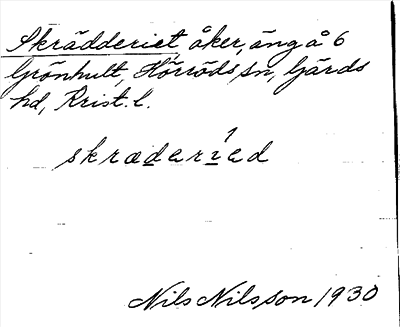 Skrädderiet, åker, äng å 6
Grönhult, Hörröds sn, Gärds
hd, Krist. l.
skræderi̲ed
1
Nils Nilsson 1930